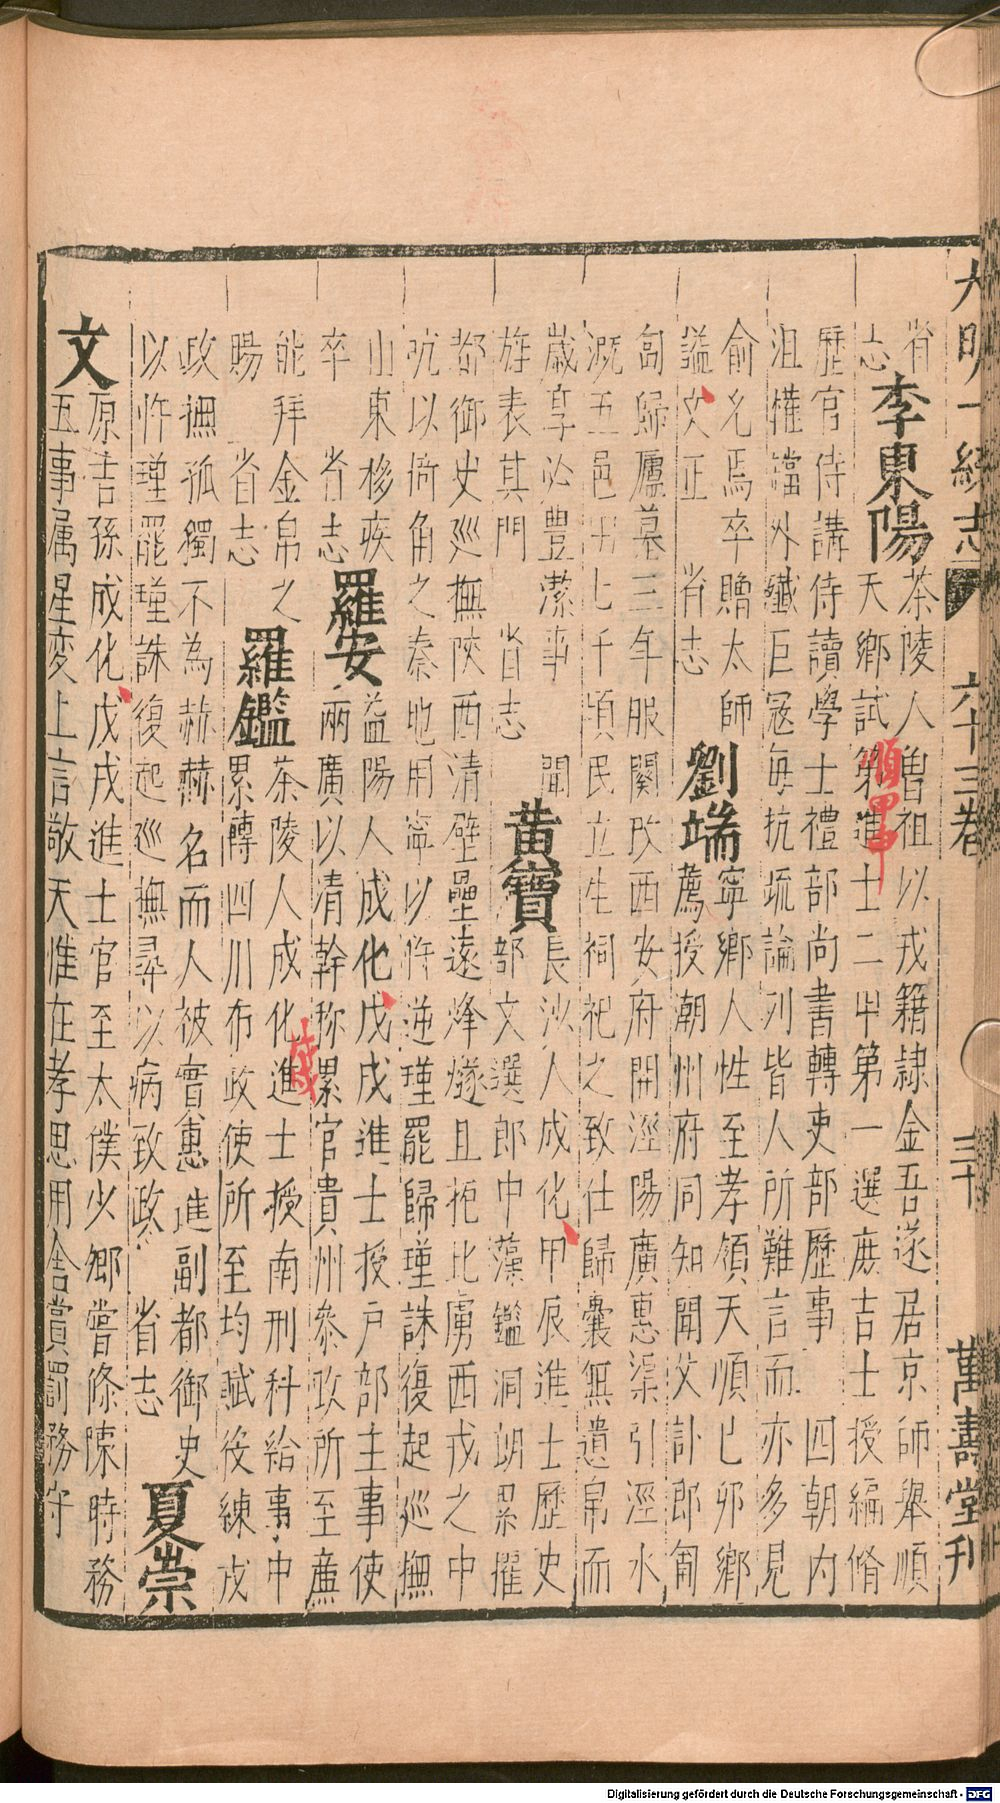 大明一統志 六十三卷 三十 萬壽堂刊
省
志 李東陽 茶陵人曾祖以戎籍隸金吾遂居京師舉順
天鄉試第進士二甲第一選庶吉士授編脩
順 甲申
歷官侍講侍讀學士禮部尚書轉吏部歷事 四朝內
沮權璫外殲巨寇每抗疏論列皆人所難言而亦多見
俞允焉卒贈太師
謚文正 省志 劉端 寧鄉人性至孝領天順己卯鄉
薦授潮州府同知聞父訃即匍
匐歸廬墓三年服闋改西安府開涇陽廣惠渠引涇水
溉五邑田七千頃民立生祠祀之致仕歸囊無遺帛而
歲享必豐潔事 聞
旌表其門 省志 黄寶 長沙人成化甲辰進士歷史
部文選郎中藻鑑洞朗累擢
都御史巡撫陜西清壁壘遠烽燧且扼北虜西戎之中
吭以掎角之秦地用寧以忤逆瑾罷歸瑾誅復起巡撫
山東移疾
卒 省志 羅安 益陽人成化戊戌進士授户部主事使
兩廣以清幹称累官貴州參政所至廉
能拜金帛之
賜 省志 羅鑑 茶陵人成化進士授南刑科給事中
累轉四川布政使所至均賦役練戎
戊戌
政撫孤獨不為赫赫名而人被實惠進副都御史
以忤瑾罷瑾誅復起巡撫尋以病致政 省志 夏崇
文 原吉孫成化戊戌進士官至太僕少卿嘗條陳時務
五事属星变上言敬天惟在孝思用舍賞罰務守
Digitalisierung gefördert durch die Deutsche Forschungsgemeinschaft - DFG